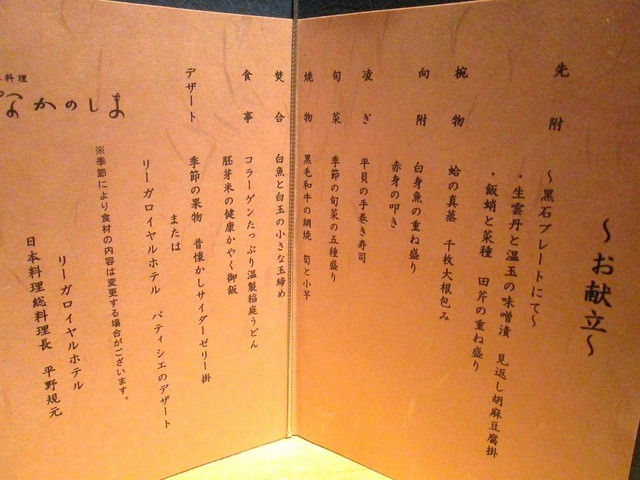 ～お献立～
先附
～黒石プレートにて～
・生雲丹と温玉の味噌漬　見返し胡麻豆腐掛
・飯蛸と菜種　田芹の重ね盛り
椀物
蛤の真蒸　千枚大根包み
向附
白身魚の重ね盛り
赤身の叩き
凌ぎ
平貝の手巻き寿司
旬菜
季節の旬菜の五種盛り
焼物
黒毛和牛の網焼　筍と小芋
焚合
白魚と白玉の小さな玉締め
食事
コラーゲンたっぷり温製稲庭うどん
胚芽米の健康かやく御飯
デザート
季節の果物　昔懐かしサイダーゼリー掛
または
リーガロイヤルホテル　パティシエのデザート
※季節により食材の内容は変更する場合がございます。
リーガロイヤルホテル
日本料理総料理長　平野規元
料理
なかのしま